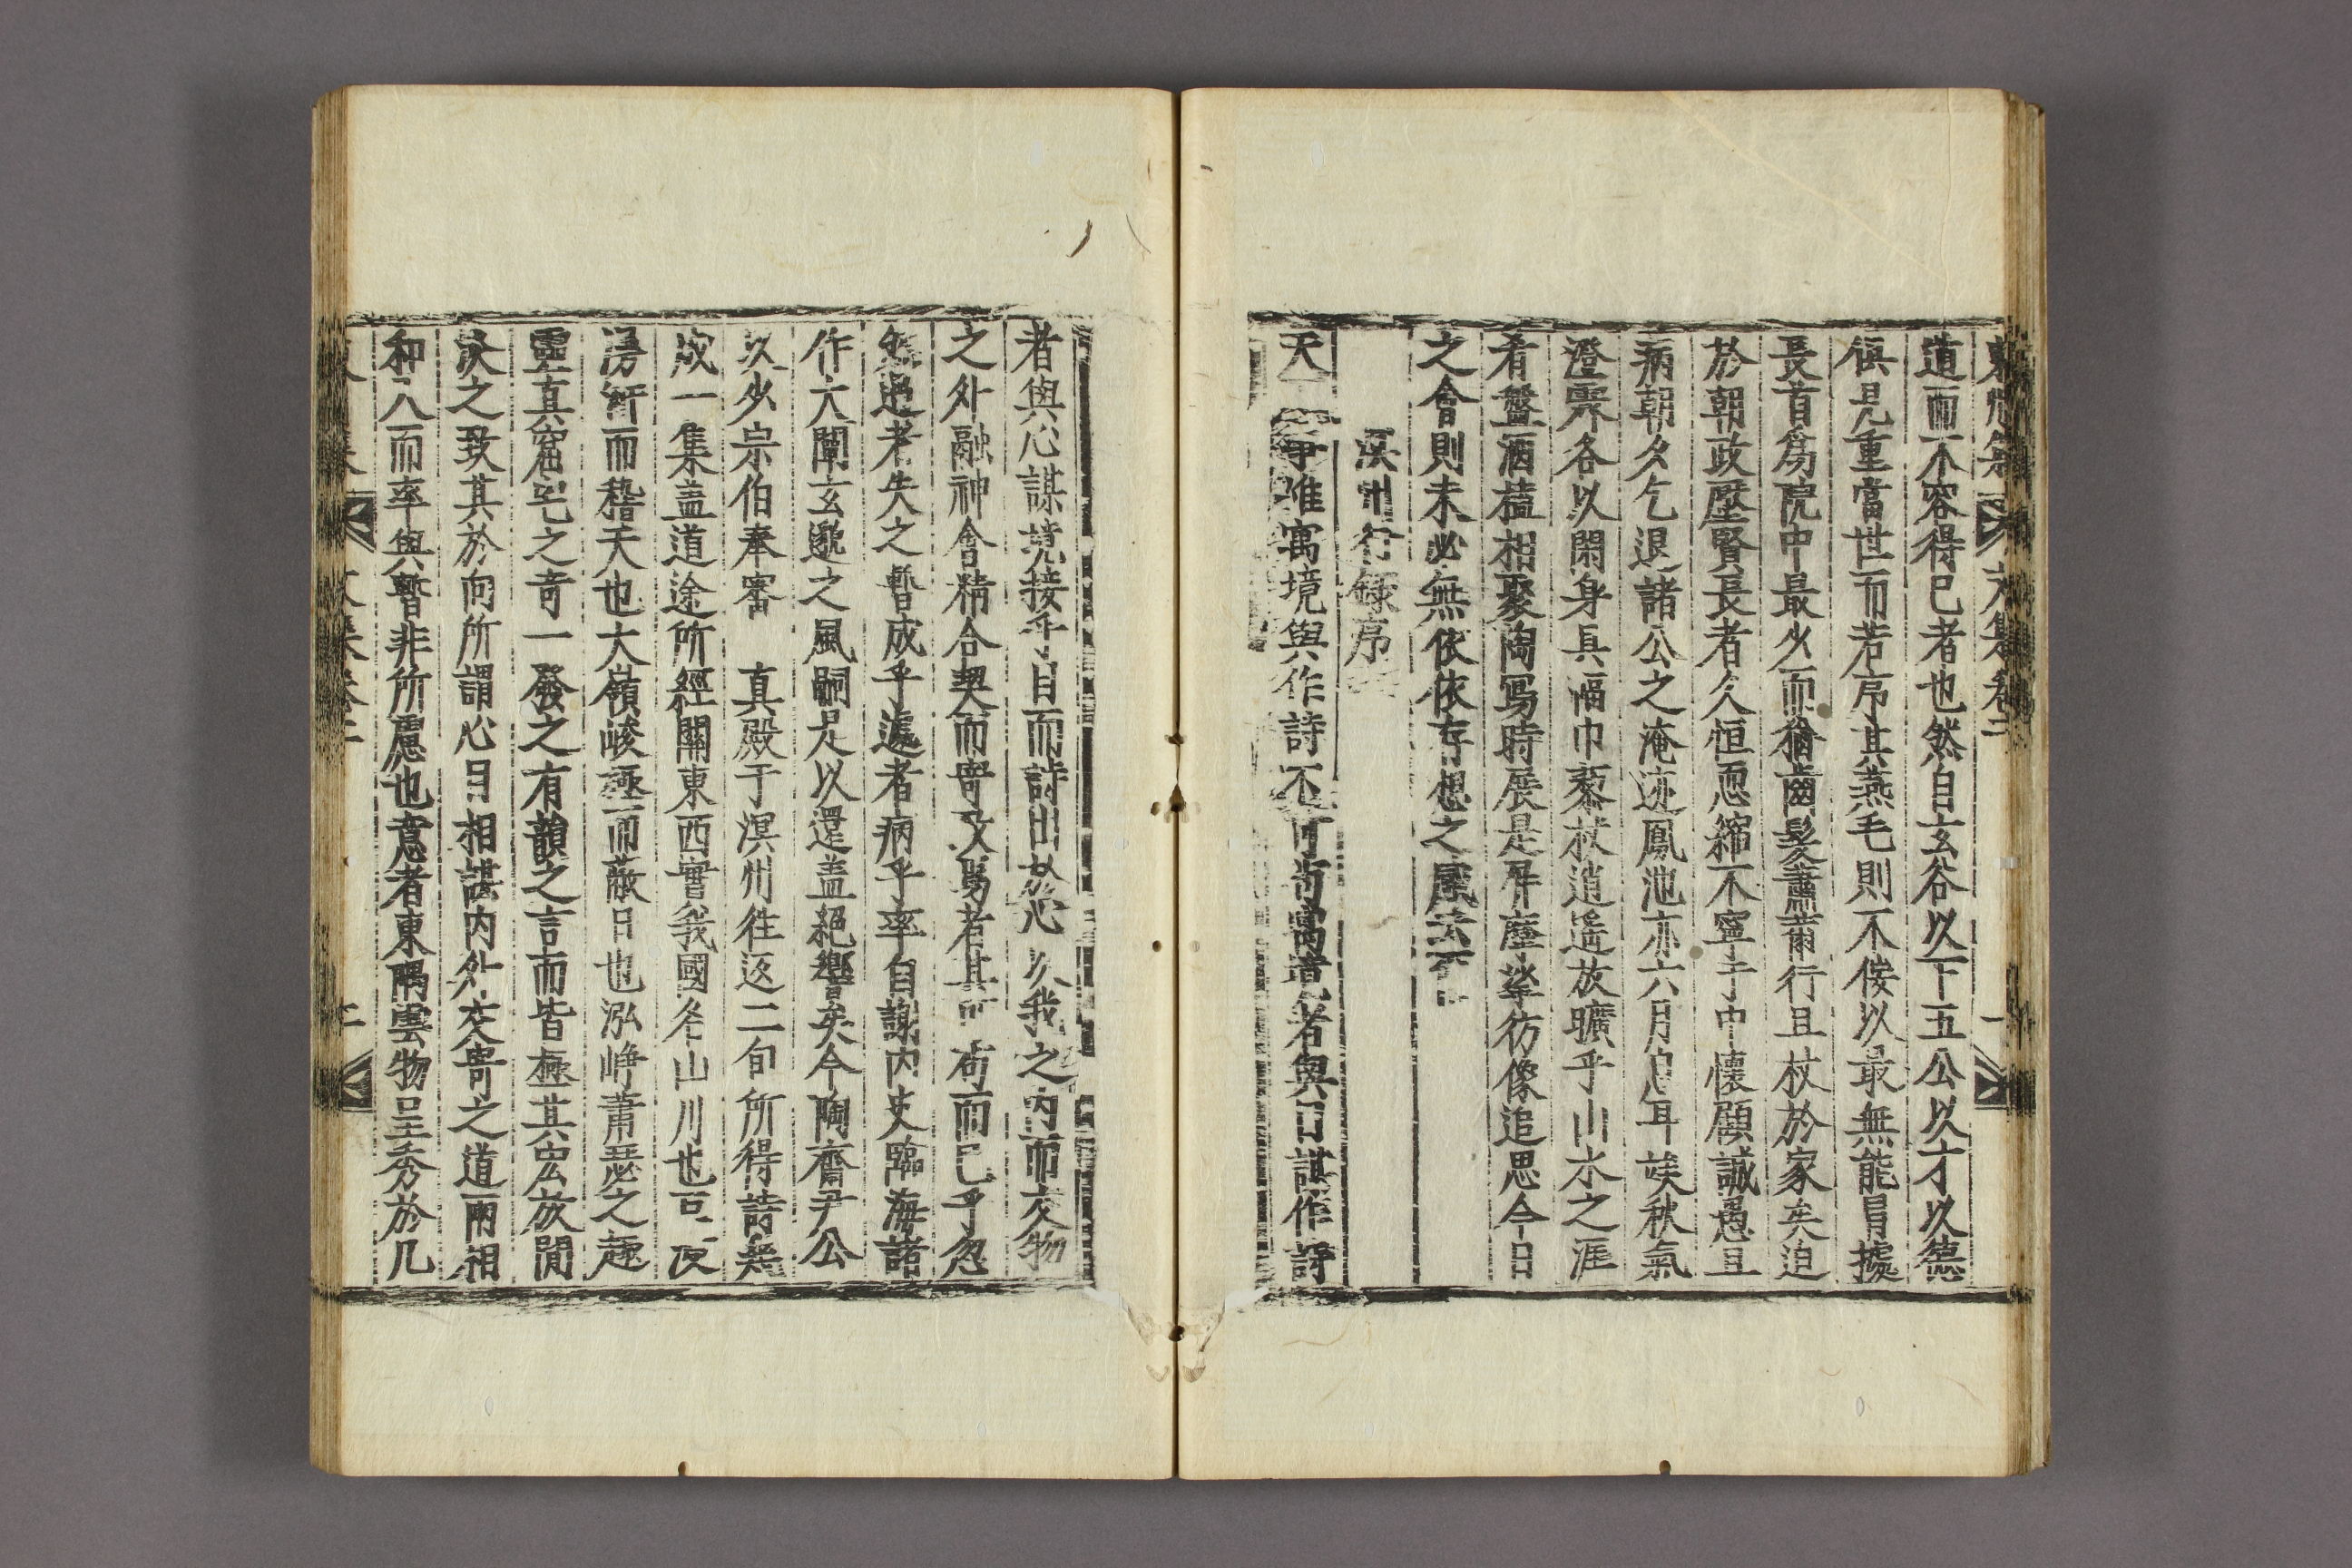 道而不容得已者也然自玄谷以下五公以才以德
俱見重當世而若序其燕毛則不佞以最無能冒據
長首苐院中最少而猶齒髮蕭蕭行且杖於家矣迫
於朝政壓賢長者久恒恧縮不寧于中懷顧誠愚且
病朝夕乞退諸公之淹迹鳳池亦六月息耳竢秋氣
澄霽各以閑身具幅巾藜杖逍遙放曠乎山水之涯
肴盤酒榼相聚陶寫時展是屛塵挲彷像追思今日
之會則未必無依依存想之感云
溟州行錄序
天 爭唯寓境與作詩不可尚寓境者與目謀作詩
者與心謀境接乎目而詩出於心 以我之內而交物
之外融神會精合契而寄以爲者其 苟而已乎忽
過者失之暫成乎遽者病乎率自謝內史臨海諸
作大闡玄邈之風嗣是以還盖絕響矣今陶齋尹公
以少宗伯奉審 真殿于溟州往返二旬所得詩
成一集盖道途所經關東西實我國名山川也
滂汗而稽天也大嶺峻極而蔽日也泓崢蕭瑟之趣
靈真窟宅之奇一發之有韻之言而皆極其宏放閒
泱之致其於向所謂心目相謀內外交寄之道兩相
和 而率與暫非所慮也意者東隅雲物呈秀於几
文集卷二
二